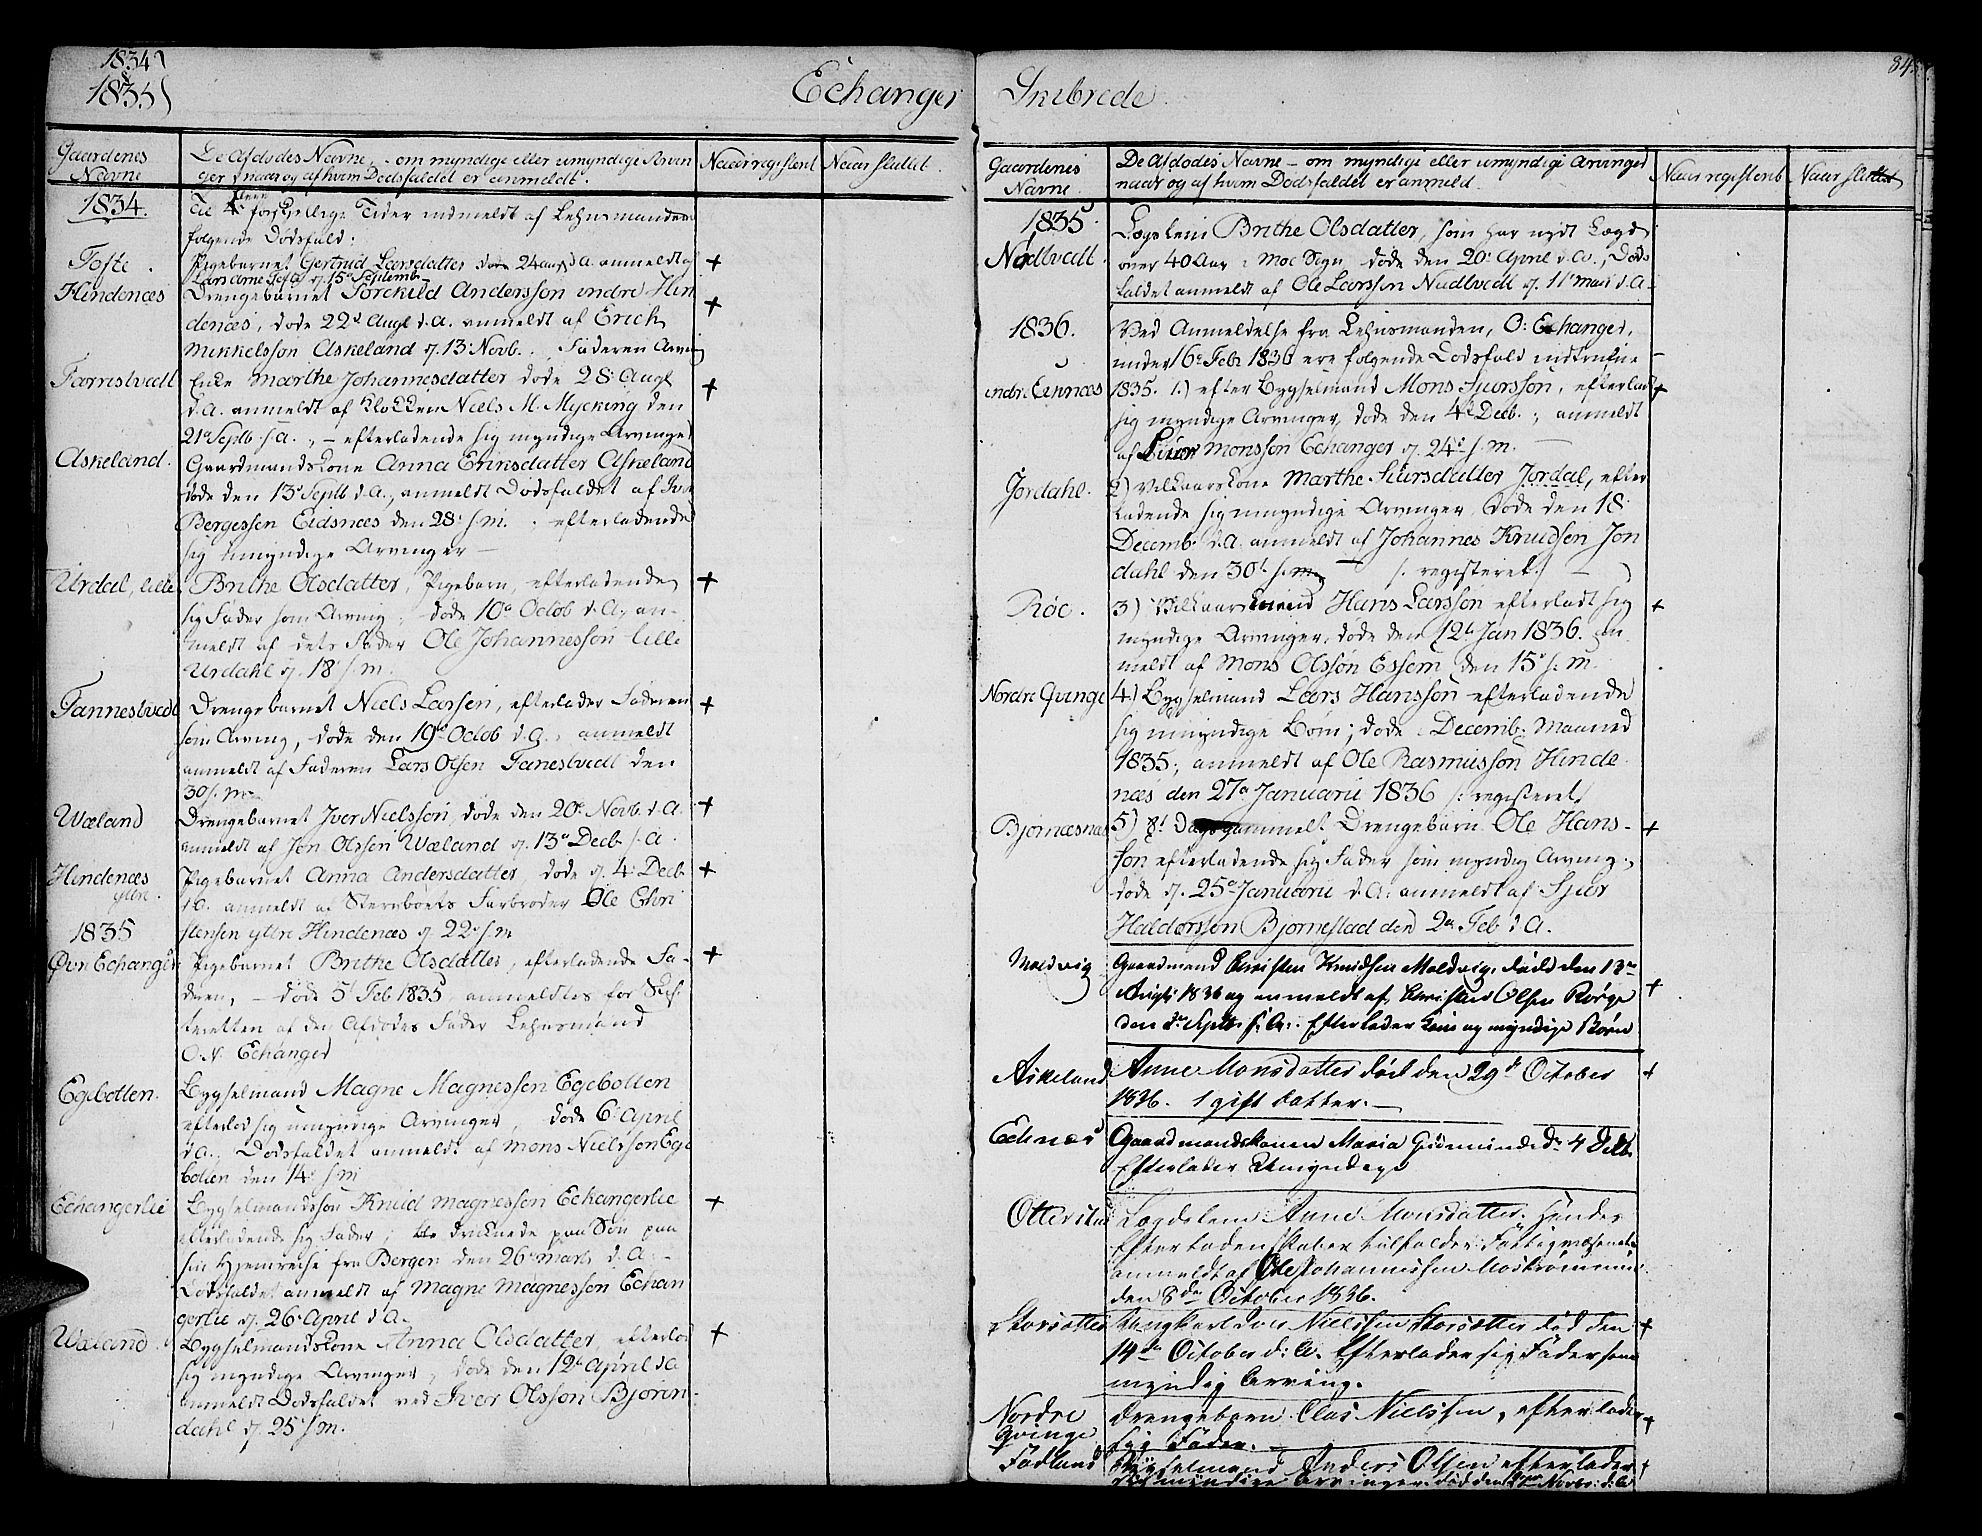 1834
&
1835
Echanger
Gaardenes
Nævne
De Afdødes Navne, - om myndige eller umyndige Arvin
ger, naar og af hvem Dødsfaldet er anmeldt.
Naar registert
Naar sluttet.
1834.
Til forskjellige Tider indmeldt af Lehnsmanden
følgende Dødsfald:
Tofte.
Pigebarnet Gertrud Larsdatter døde 24 Aug d.A. anmeldt af
Lars Arne Tofte d. 15 Septemb.
+
Hindenæs
Drengebarnet Torckild Andersson indre Hin
denæs, døde 22d Augt d.A. anmeldt af Erich
Mikkelsson Askeland d. 13 Novb. Faderen Arving
+
Farnestvedt
Enke Marthe Johannesdatter døde 28 Augt
d.A. anmeldt af Klokker Niels M. Mycking den
21de Septb. s.A., - efterladende sig myndige Arvinger
+
Askeland.
Gaardmandskone Anna Eriksdatter Askeland
døde den 13 Septb d.A., anmeldt Dødsfaldet af
Bergessen Eidsnæs den 28 s.m. efterladende
sig umyndige Arvinger -
Urdal, lille
Brithe Olsdatter, Pigebarn, efterladende
sig Fader som Arving, døde 10de Octob d.A, an-
meldt af dets Fader Ole Johannesson lille
Urdahl d. 18 s.m.
+
Tannestvedt
Drengebarnet Niels Larsen, efterlader Faderen
som Arving, døde den 19de Octob d.A., anmeldt
anmeldt af Faderen Lars Olsen Tanestvedt den
30 s.m.
+
Wæland
Drengebarnet Iver Nielsson, døde den 20de Novb. d.A.
anmeldt af Jon Olsson Wæland d. 13de Decb s.A.
+
Hindenæs
yttre.
Pigebarnet Anna Andersdatter, døde d. 4 Decb
d.A. anmeldt af Farbroder Ole Chri
stensen yttre Hindenæs d. 22 s.m
+
1835
Øvre Echanger
Pigebarnet Brithe Olsdatter, efterladende Fa-
deren, - døde 5t Feb 1835, anmeldtes for Skif-
teretten af den Afdødes Fader Lehnsmand
O.N. Echanger
+
Egebotten.
Bygselmand Magne Magnessen Egebotten
efterlod sig umyndige Arvinger, døde 6 April
d.A., Dødsfaldet anmeldt af Mons Nielsson Ege
botten den 14 s.m
Echangerlie
Bygselmandssøn Knud Magnesson Echangerlie
efterladende sig Fader; druknede paa Søen paa
sin Hjemreise fra Bergen den 26 Marts d.A. -
Dødsfaldet anmeldt af Magne Magnesson Echan
gerlie d. 26 April d.A.
+
Wæland.
Bygselmandskone Anna Olsdatter, efterlod
sig myndige Arvinger, døde den 12te April d.A
anmeldt Dødsfaldet ved Iver Olsson Bjørn
dahl d. 25 s.m.
+
Skibrede.
845
Gaardenes
Navne.
De Afdødes Navne - om myndige eller umyndige Arvinger
naar og af hvem Dødsfaldet er anmeldt.
Naar registert
Naar sluttet
1835.
Nødtvedt
Lægslem Brithe Olsdatter, som har nydt Lægd
over 40 Aar i Moe Sogn døde den 20 April d.A., Døds
faldet anmeldt af Ole Larsson Nødtvedt d. 11t Mai d.A.
1836.
Ved Anmeldelse fra Lehnsmanden, O: Echanger,
under 16de Feb 1836 ere følgende Dødsfald indtrufne -
indre Eennæs
1835. 1.) efter Bygselmand Mons Sjursson, efterlod
sig myndige Arvinger, døde den 4de Decb., anmeldt
af Sjur Monsson Echanger d. 24de s.m. -
+
Jordahl.
2) Vilkaarskone Marthe Siursdatter Jordal, efter
ladende sig myndige Arvinger, døde den 18
Decemb. d.A. anmeldt af Johannes Knudsen Jor
dahl den 30t s.m. - /: registeret:/
Röe.
3) Vilkaarsmand Hans Larsson efterladt sig
myndige Arvinger, døde den 12te Jan 1836. an
meldt af Mons Olsson Essem den 15de s.m.
+
Nordre Qvinge
4) Bygselmand Lars Hansson efterladende
sig umyndige Børn; døde i Decemb. Maaned
1835, anmeldt af Ole Rasmusson Hinde
næs den 27de Januarii 1836 /: registeret/
Bjornæsnæs
5) 8t Dags gammelt Drengebarn Ole Hans-
son efterladende sig Fader som myndig Arving,
døde d. 25de Januarii d.A: anmeldt af Sjur
Haldorssen Bjornestad den 2de Feb d.A.
+
Moldvig
Gaardmand Christen Knudsen Moldvig, død den 13de
August 1836 og anmeldt af Christen Olsen Rørge
den Septbr. s: A:. Efterlader Kone og myndige Børn
+
Askeland
Anne Monsdatter død den 29de October
1836. 1 gift Datter. -
+
Echnæs
Gaardmandskonen Maria Gudmundsdr 4 Decb.
Efterlader Umyndige
Otterstad
Lægdslem Anne Monsdatter, hendes
Efterladenskaber tilfalder Fattigvæsenet
anmeldt af Ole Johannessen
den 8de October 1836.
Storsætter
Ungkarl Iver Nielssen Storsætter død den
14de October d: A. Efterlader sig Fader som
myndig Arving.
+
Nordre
Qvinge
Drengebarn Claus Nielssen, efterlader
sig Fader. -
+
Fødland
Bygselmand Anders Olsen efterlader
sig myndige Arvinger, død den Novbr: d: A
+